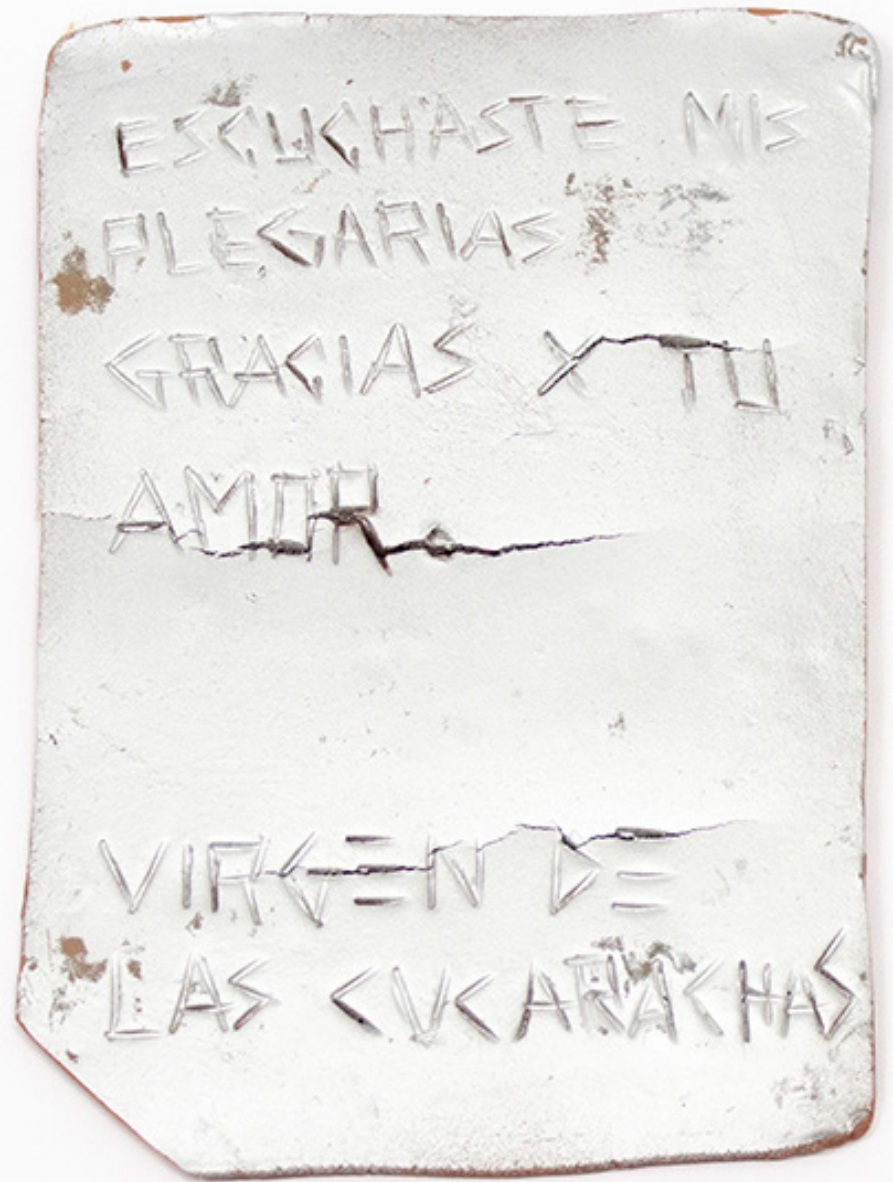 ESCUCHASTE MIS
PLEGARIAS
GRACIAS Y TU
AMOR.
VIRGEN DE
LAS CUCARACHAS